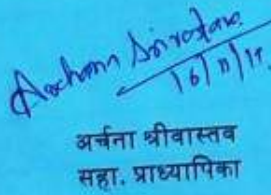 Archana Srivastava
16/11/17
अर्चना श्रीवास्तव
सहा. प्राध्यापिका